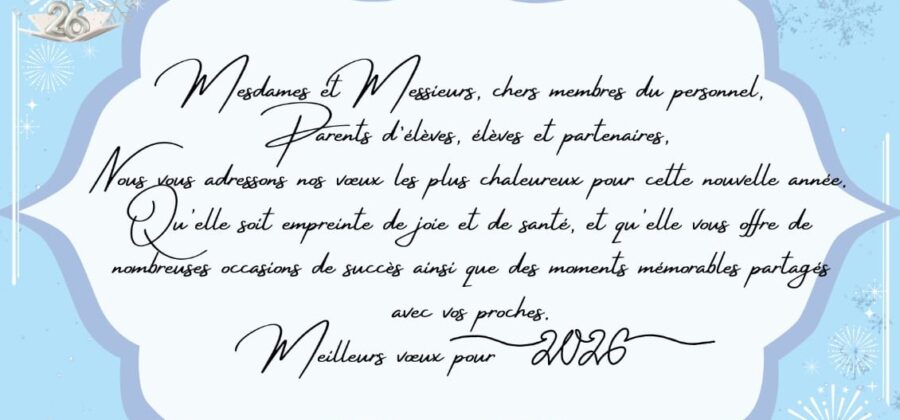 26
Mesdames et Messieurs, chers membres du personnel,
Parents d'élèves, élèves et partenaires,
Nous vous adressons nos vœux les plus chaleureux pour cette nouvelle année.
Qu'elle soit empreinte de joie et de santé, et qu'elle vous offre de
nombreuses occasions de succès ainsi que des moments mémorables partagés
avec vos proches.
Meilleurs vœux pour 2026